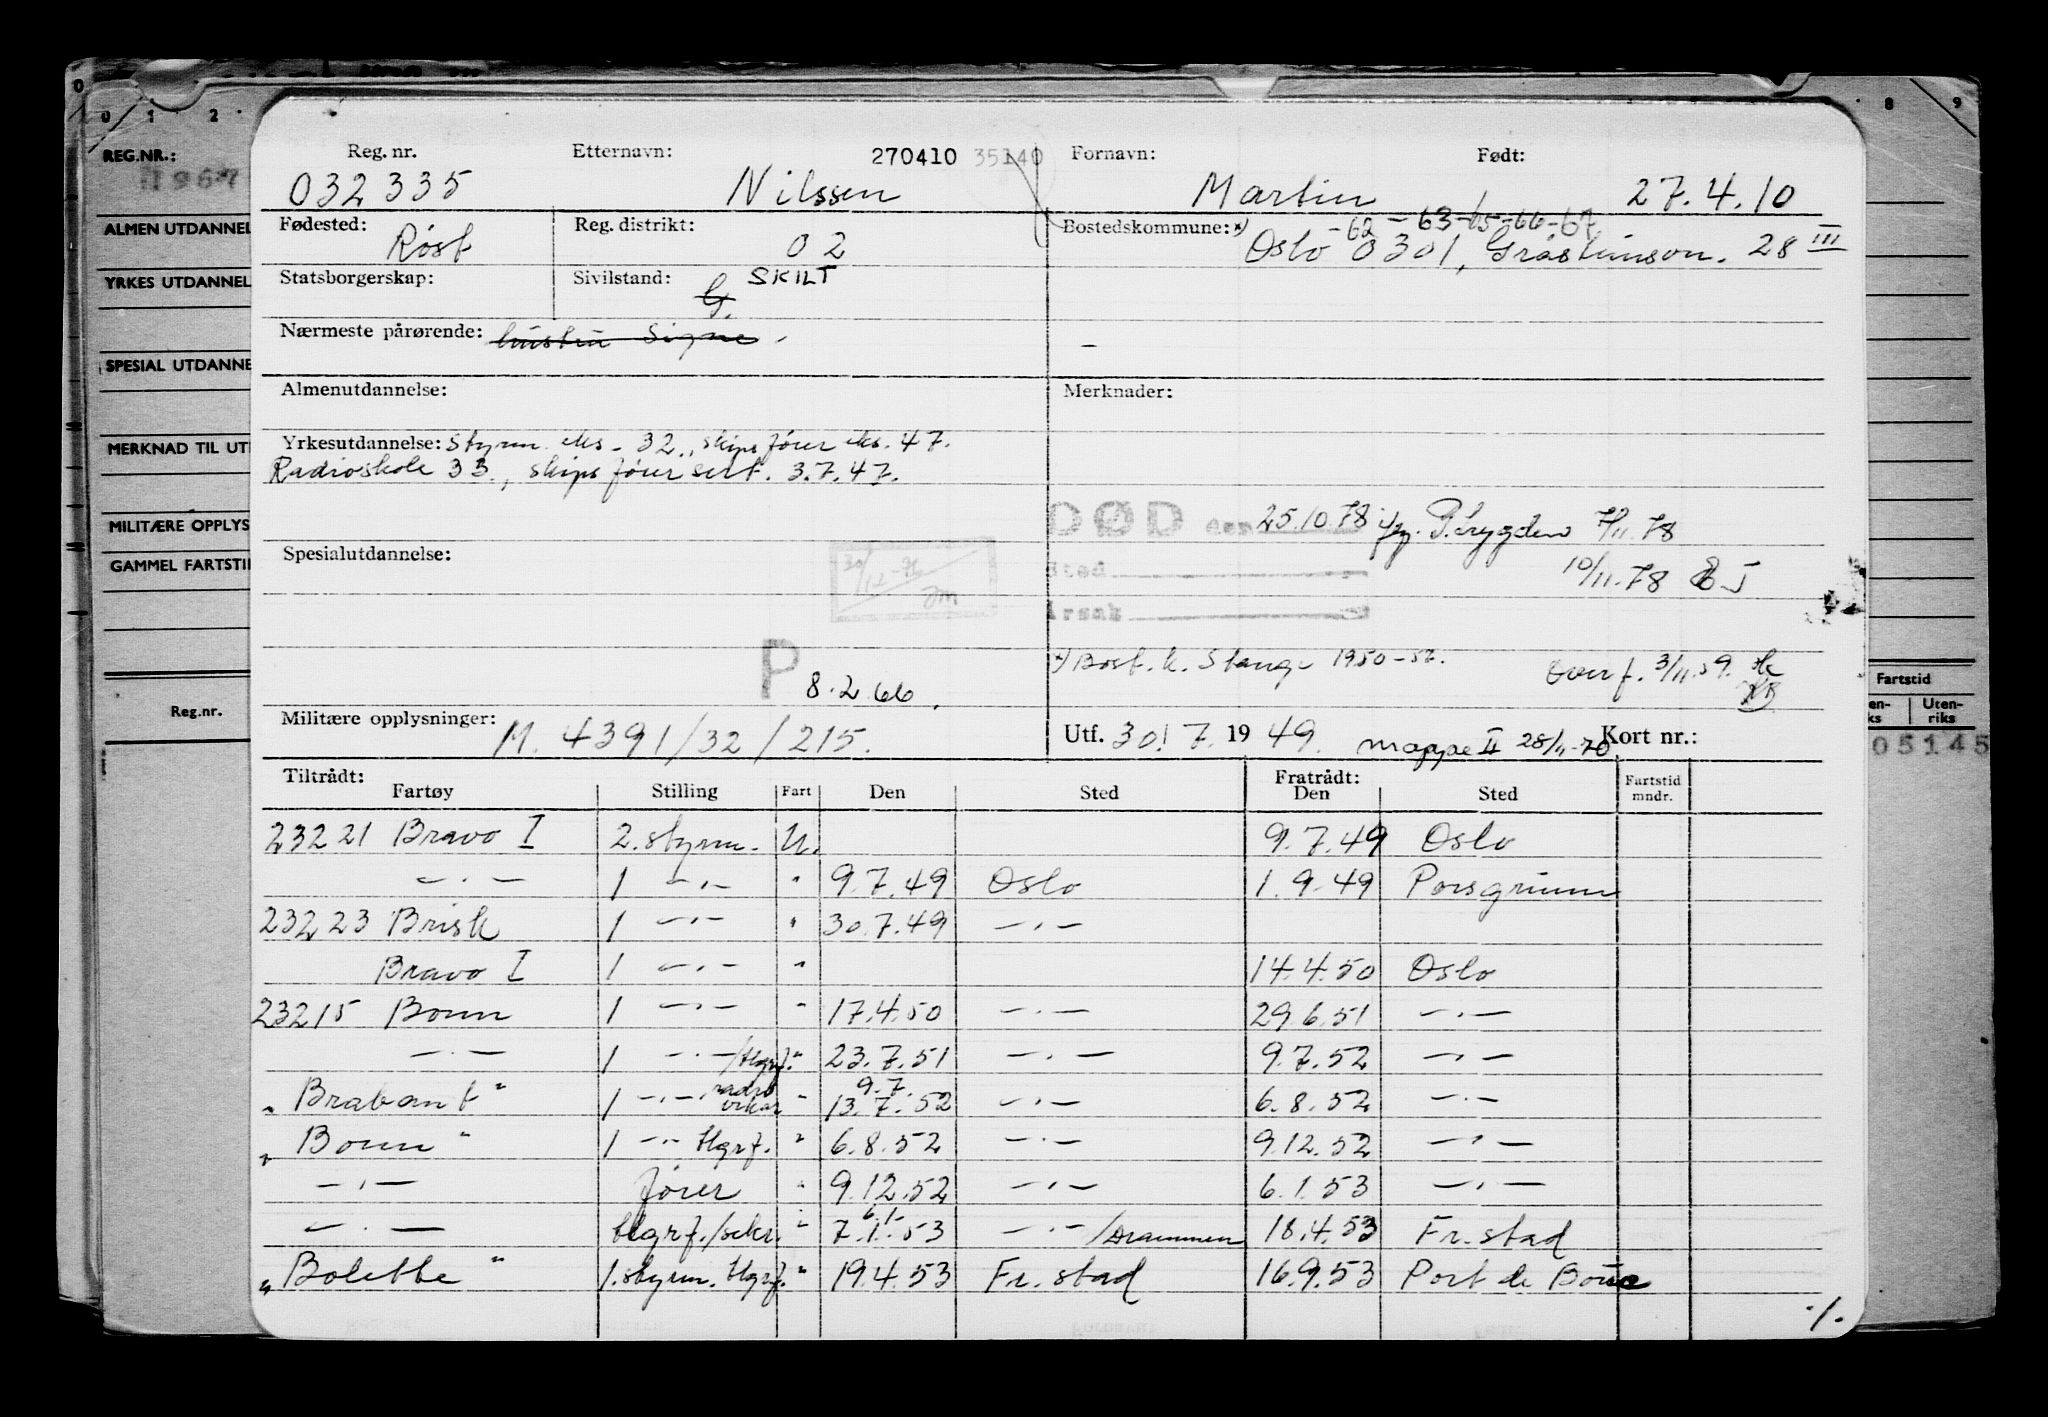 0 1 2 8 9
REG.NR.:
ALMEN UTDANNEL
YRKES UTDANNEL
SPESIAL UTDANNE
MERKNAD TIL UT
MILITÆRE OPPLYS
GAMMEL FARTSTI
Reg.nr.
Fartstid
Uten-
riks
05145
Reg. nr. Etternavn: 270410 35140 Fornavn: Født:
032335 Nilssen Martin 27.4.10
Fødested: Røst Reg. distrikt: 02 Bostedskommune: *) -62-63-65-66-67
Oslo 0301, 28 III
Statsborgerskap: Sivilstand: G. SKILT
Nærmeste pårørende: hustru Signe
Almenutdannelse: Merknader:
Yrkesutdannelse: Styrm. eks - 32., skipsfører eks. 47.
Radioskole 33., skipsfører sert. 3.7.47.
DØD den 25.10.78 jfr. P.trygden 7/11.78
Spesialutdannelse: 10/11.78
Sted
Årsak
*) Bost. k. Stange 1950-52. Overf. 3/11.59.
P 8.2.66
Militære opplysninger: M. 4391/32/215. Utf. 30.7. 1949. mappe II 28/11-70 Kort nr.:
Tiltrådt: Fratrådt: Fartstid
Fartøy Stilling Fart Den Sted Den Sted mndr.
23221 Bravo I 2. styrm. U. 9.7.49 Oslo
—·— 1 —·— " 9.7.49 Oslo 1.9.49 Porsgrunn
23223 Brisk 1 —·— " 30.7.49 —·—
Bravo I 1 —·— " 14.4.50 Oslo
23215 Bonn 1 —·— " 17.4.50 —·— 29.6.51 —·—
—·— 1 —·—/tlgrf. " 23.7.51 —·— 9.7.52 —·—
"Brabant" 1 —·— radio vikar " 9.7. 13.7.52 —·— 6.8.52 —·—
"Bonn" 1 —·— tlgrf. " 6.8.52 —·— 9.12.52 —·—
—·— fører " 9.12.52 —·— 6.1.53 —·—
—·— tlgrf./sekr. " 6.1- 7.1.53 —·—/Drammen 18.4.53 Fr.stad
"Bolette" 1. styrm. tlgrf. " 19.4.53 Fr. stad 16.9.53 Port de Bouc
·/.